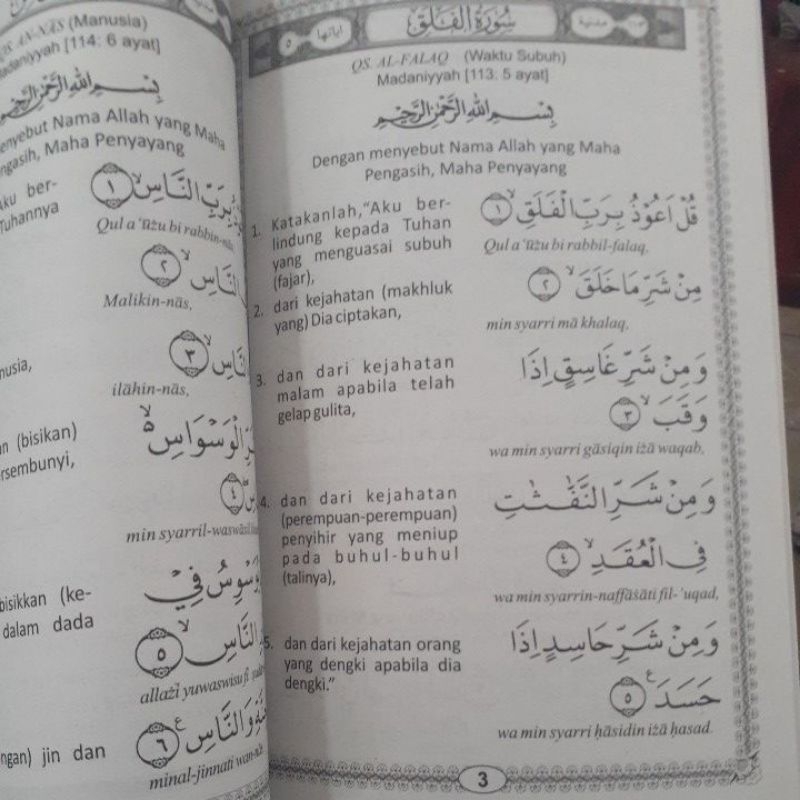 QS. AN-NĀS (Manusia)
Madaniyyah [114: 6 ayat]
بِسْمِ اللّٰهِ الرَّحْمٰنِ الرَّحِيْمِ
menyebut Nama Allah yang Maha
Pengasih, Maha Penyayang
Aku ber-
Tuhannya
بِرَبِّ النَّاسِۙ ١
Qul a‘ūżu bi rabbin-nās,
النَّاسِۙ ٢
Malikin-nās,
النَّاسِۙ ٣
ilāhin-nās,
(bisikan)
الْوَسْوَاسِ ەۙ
٤
min syarril-waswāsil
bisikkan (ke-
dalam dada
يُوَسْوِسُ فِيْ
النَّاسِۙ ٥
allażī yuwaswisu fī
jin dan
وَالنَّاسِ ࣖ ٦
minal-jinnati wan-nās
اياتها ٥ سُوْرَةُ الْفَلَقِ مدنية
QS. AL-FALAQ (Waktu Subuh)
Madaniyyah [113: 5 ayat]
بِسْمِ اللّٰهِ الرَّحْمٰنِ الرَّحِيْمِ
Dengan menyebut Nama Allah yang Maha
Pengasih, Maha Penyayang
1. Katakanlah,“Aku ber-
lindung kepada Tuhan
yang menguasai subuh
(fajar),
قُلْ اَعُوْذُ بِرَبِّ الْفَلَقِۙ ١
Qul a‘ūżu bi rabbil-falaq,
2. dari kejahatan (makhluk
yang) Dia ciptakan,
مِنْ شَرِّ مَا خَلَقَۙ ٢
min syarri mā khalaq,
3. dan dari kejahatan
malam apabila telah
gelap gulita,
وَمِنْ شَرِّ غَاسِقٍ اِذَا
وَقَبَۙ ٣
wa min syarri gāsiqin iżā waqab,
4. dan dari kejahatan
(perempuan-perempuan)
penyihir yang meniup
pada buhul-buhul
(talinya),
وَمِنْ شَرِّ النَّفّٰثٰتِ
فِى الْعُقَدِۙ ٤
wa min syarrin-naffāṡāti fil-‘uqad,
5. dan dari kejahatan orang
yang dengki apabila dia
dengki.”
وَمِنْ شَرِّ حَاسِدٍ اِذَا
حَسَدَ ࣖ ٥
wa min syarri ḥāsidin iżā ḥasad.
3